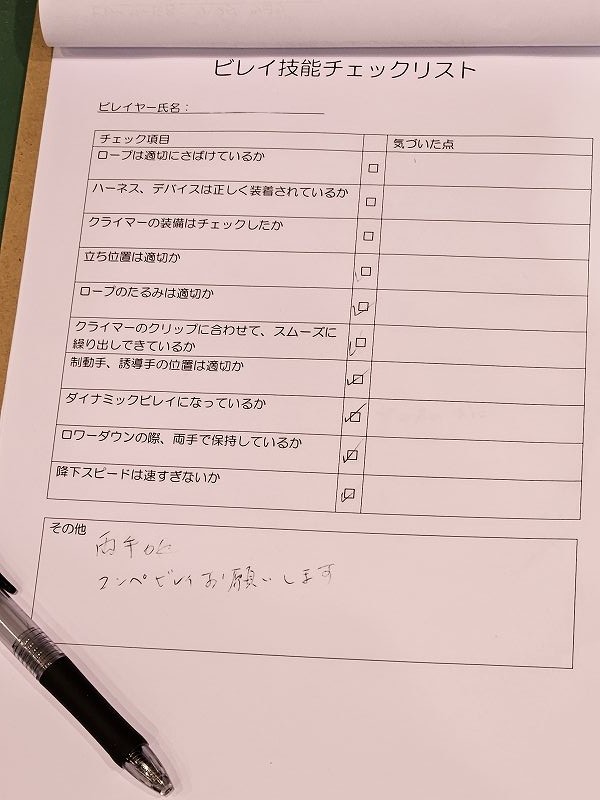 ビレイ技能チェックリスト
ビレイヤー氏名：
チェック項目 気づいた点
ロープは適切にさばけているか □
ハーネス、デバイスは正しく装着されているか □
クライマーの装備はチェックしたか □
立ち位置は適切か □
ロープのたるみは適切か ☑
クライマーのクリップに合わせて、スムーズに
繰り出しできているか ☑
制動手、誘導手の位置は適切か ☑
ダイナミックビレイになっているか ☑
ロワーダウンの際、両手で保持しているか ☑
降下スピードは速すぎないか ☑
その他
両手OK
コンペビレイお願いします